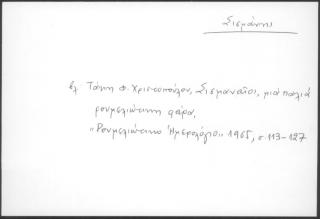 Σισμάνης
βλ. Τάκη Φ. Χριστοπούλου, Σισμαναῖοι, μιά παλιά
ρουμελιώτικη φάρα,
"Ρουμελιώτικο Ἡμερολόγιο" 1965, σ. 113-127